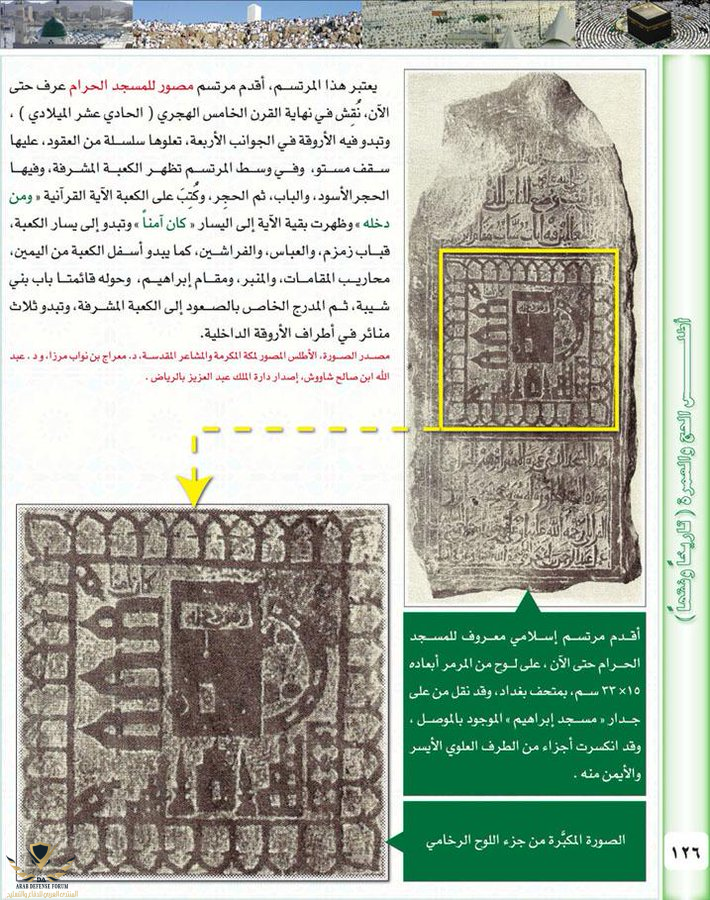 يعتبر هذا المرتسم، أقدم مرتسم مصور للمسجد الحرام عرف حتى
الآن، نُقِش في نهاية القرن الخامس الهجري ( الحادي عشر الميلادي ) ،
وتبدو فيه الأروقة في الجوانب الأربعة، تعلوها سلسلة من العقود، عليها
سقف مستو، وفي وسط المرتسم تظهر الكعبة المشرفة، وفيها
الحجر الأسود، والباب، ثم الحجر، وكُتِبَ على الكعبة الآية القرآنية « ومن
دخله » وظهرت بقية الآية إلى اليسار « كان آمناً » وتبدو إلى يسار الكعبة،
قباب زمزم، والعباس، والفراشين، كما يبدو أسفل الكعبة من اليمين،
محاريب المقامات، والمنبر، ومقام إبراهيم، وحوله قائمتا باب بني
شيبة، ثم المدرج الخاص بالصعود إلى الكعبة المشرفة، وتبدو ثلاث
منائر في أطراف الأروقة الداخلية.
مصدر الصورة، الأطلس المصور لمكة المكرمة والمشاعر المقدسة، د. معراج بن نواب مرزا، و د . عبد
الله ابن صالح شاووش، إصدار دارة الملك عبد العزيز بالرياض .
أقدم مرتسم إسلامي معروف للمسجد
الحرام حتى الآن ، على لوح من المرمر أبعاده
١٥× ٣٣ سم، بمتحف بغداد، وقد نقل من على
جدار « مسجد إبراهيم » الموجود بالموصل ،
وقد انكسرت أجزاء من الطرف العلوي الأيسر
والأيمن منه .
الصورة المكبَّرة من جزء اللوح الرخامي
أطلس الحج والعمرة ( تاريخاً وفقهاً )
١٢٦
DA
ARAB DEFENSE FORUM
المنتدى العربي للدفاع والتسليح